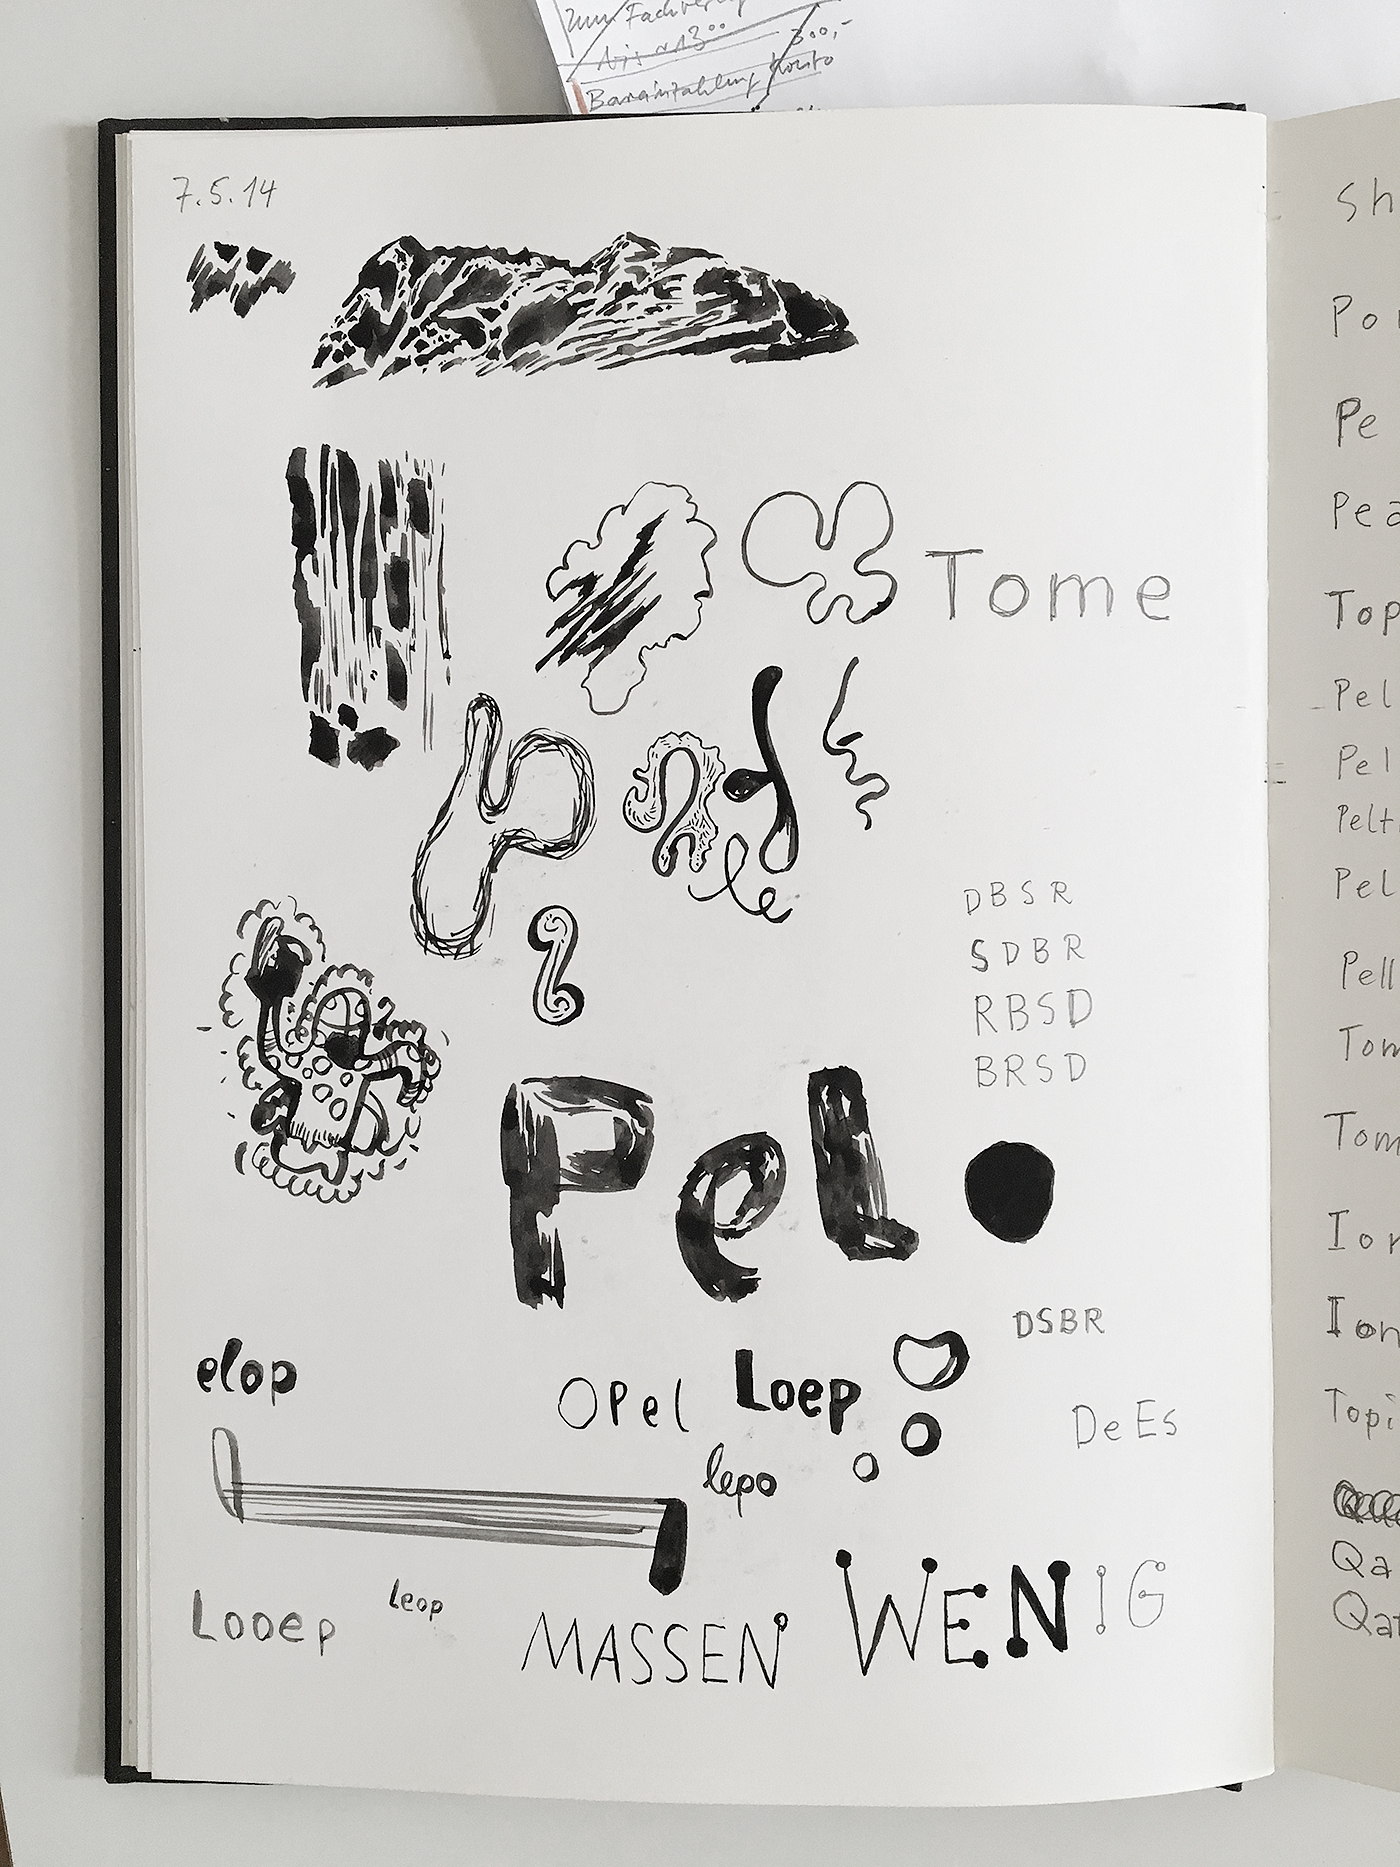 zum
300,-
Bareinzahlung Konto
7.5.14
Tome
le
DBSR
SDBR
RBSD
BRSD
PeL
DSBR
elop
OPel
Loep
DeEs
lepo
Leop
Looep
MASSEN
WENIG
Sh
Po
Pe
Pea
Top
Pel
Pel
Pelt
Pel
Pell
Tom
Tom
Ion
Topi
Qa
Qat